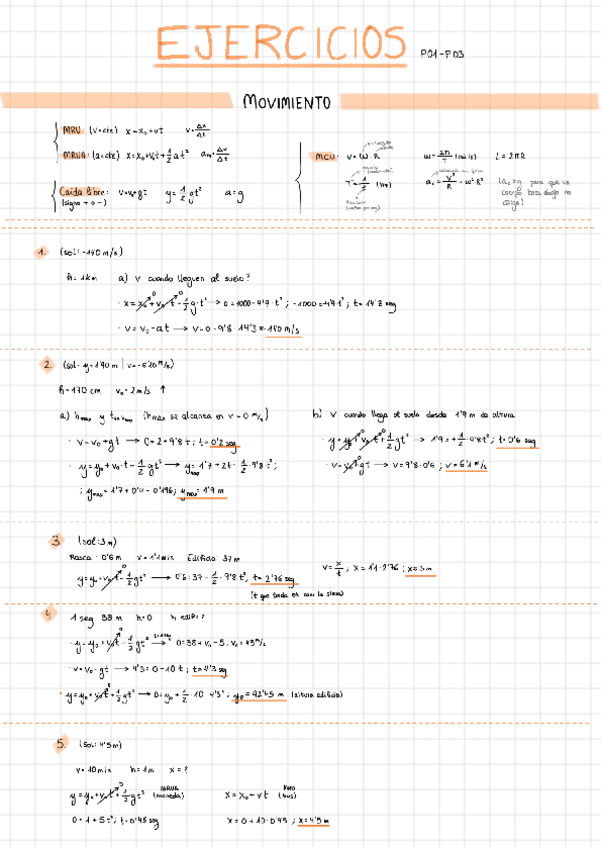 EJERCICIOS P01-P03
MOVIMIENTO
MRU: (v=cte) x = x₀+vt v = Δx/Δt
MRUA: (a=cte) x = x₀+v₀t+1/2 at² aₘ = Δv/Δt
Caída libre: v=v₀+gt y = 1/2 gt² a=g
(signo + o -)
MCU: v = ω·R ω = 2π/T (rad/s) L = 2πR
T = 1/f (Hz) a_c = v²/R = ω²R
1. (sol: -140 m/s)
h = 1km a) v cuando lleguen al suelo?
· x = x₀+v₀t-1/2 g·t² → 0 = 1000-4'9·t² ; -1000=-4'9·t² ; t = 14'3 seg
· v = v₀-at → v = 0-9'8·14'3 = -140 m/s
2. (sol: y=1'90 m | v=-6'20 m/s)
h=170 cm v₀=2m/s ↑
a) hmax y t en hmax (hmax se alcanza en v=0 m/s)
· v = v₀+gt → 0=2-9'8·t ; t=0'2 seg
· y = y₀+v₀·t-1/2 gt² → ymax = 1'7+2t-1/2·9'8t² ;
; ymax = 1'7+0'4-0'196 ; ymax = 1'9 m
b) v cuando llega al suelo desde 1'9 m de altura
· y = y₀+v₀t+1/2 gt² → 1'9 = 1/2·9'8t² ; t=0'6 seg
· v = v₀+gt → v = 9'8·0'6 ; v = 6'1 m/s
3 (sol: 3m)
Rosca: 0'6 m v = 1'1 m/s Edificio: 37m
y = y₀+v₀t-1/2 gt² → 0'6 = 37-1/2·9'8t² ; t = 2'76 seg
v = x/t ; x = 1'1·2'76 ; x=3m
4. 1 seg 38 m h=0 h edif?
· y = y₀+v₀t-1/2 gt² → 0=38+v₀-5 ; v₀=43m/s
· v = v₀-gt → 43=0-10t ; t=4'3 seg
· y = y₀+v₀t+1/2 gt² → 0 = y₀+1/2·10·4'3² ; y₀ = 92'45 m (altura edificio)
5. (sol: 4'5m)
v = 10m/s h=1m x=?
y = y₀+v₀t+1/2 gt² MRUA (moneda) x = x₀-vt MRU (bus)
0=1+5t² ; t=0'45seg x = 0+10·0'45 ; x=4'5m